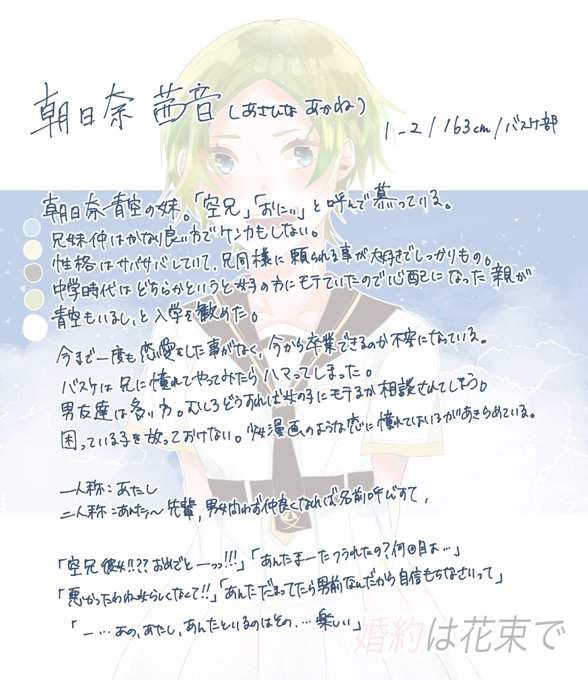 朝日奈 茜音(あさひな あかね)
1-2/163cm/バスケ部
朝日奈青空の妹。「空兄」「おにぃ」と呼んで慕っている。
兄妹仲はかなり良い方でケンカもしない。
性格はサバサバしていて、兄同様に頼られる事が大好きでしっかりもの。
中学時代はどちらかというと女子の方にモテていたので心配になった親が
青空もいるし、と入学を勧めた。
今まで一度も恋愛をした事がなく、今から卒業できるのか不安になっている。
バスケは兄に憧れてやってみたらハマってしまった。
男友達は多い方。むしろどうすれば女の子にモテるか相談されてしまう。
困っている子を放っておけない。少女漫画のような恋に憧れてはいるがあきらめている。
一人称:あたし
二人称:あんた、〜先輩、男女問わず仲良くなれば名前呼びすて、
「空兄彼女!!??おめでとーっっ!!!」「あんたまーたフラれたの?何回目よ…」
「悪かったわね女らしくなくて!!」「あんただまってたら男前なんだから自信もちなさいって」
「ー…あの、あたし、あんたといるのはその、…楽しい」
婚約は花束で